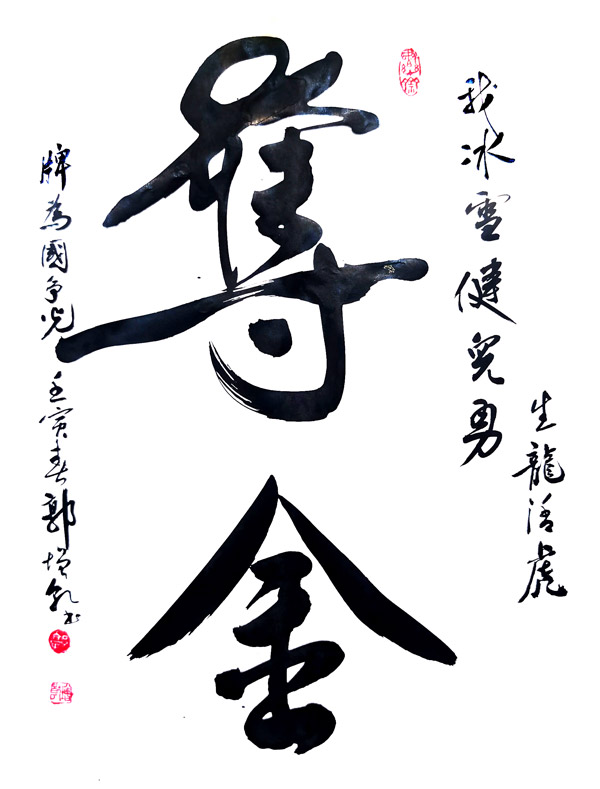 生龍活虎
我冰雪健兒勇
奪金
牌為國争光 壬寅春郭增书